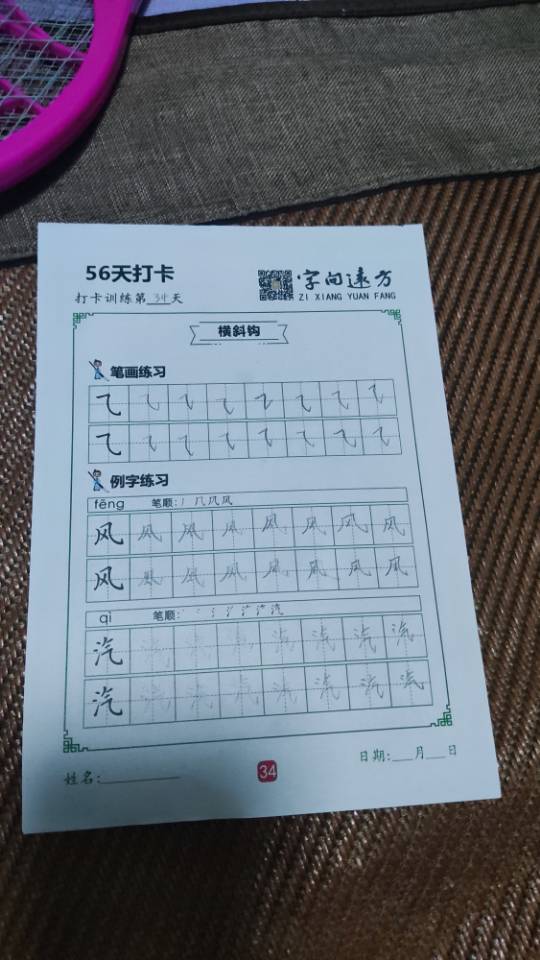 56天打卡
字向遠方
打卡训练第34天
ZI XIANG YUAN FANG
横斜钩
笔画练习
乁 乁 乁 乁 乁 乁 乁 乁
乁 乁 乁 乁 乁 乁 乁 乁
例字练习
fēng 笔顺:丿 几 风 风
风 风 风 风 风 风 风 风
风 风 风 风 风 风 风 风
qì 笔顺:
汽 汽 汽 汽 汽 汽 汽 汽
汽 汽 汽 汽 汽 汽 汽 汽
姓名:
34
日期: 月 日